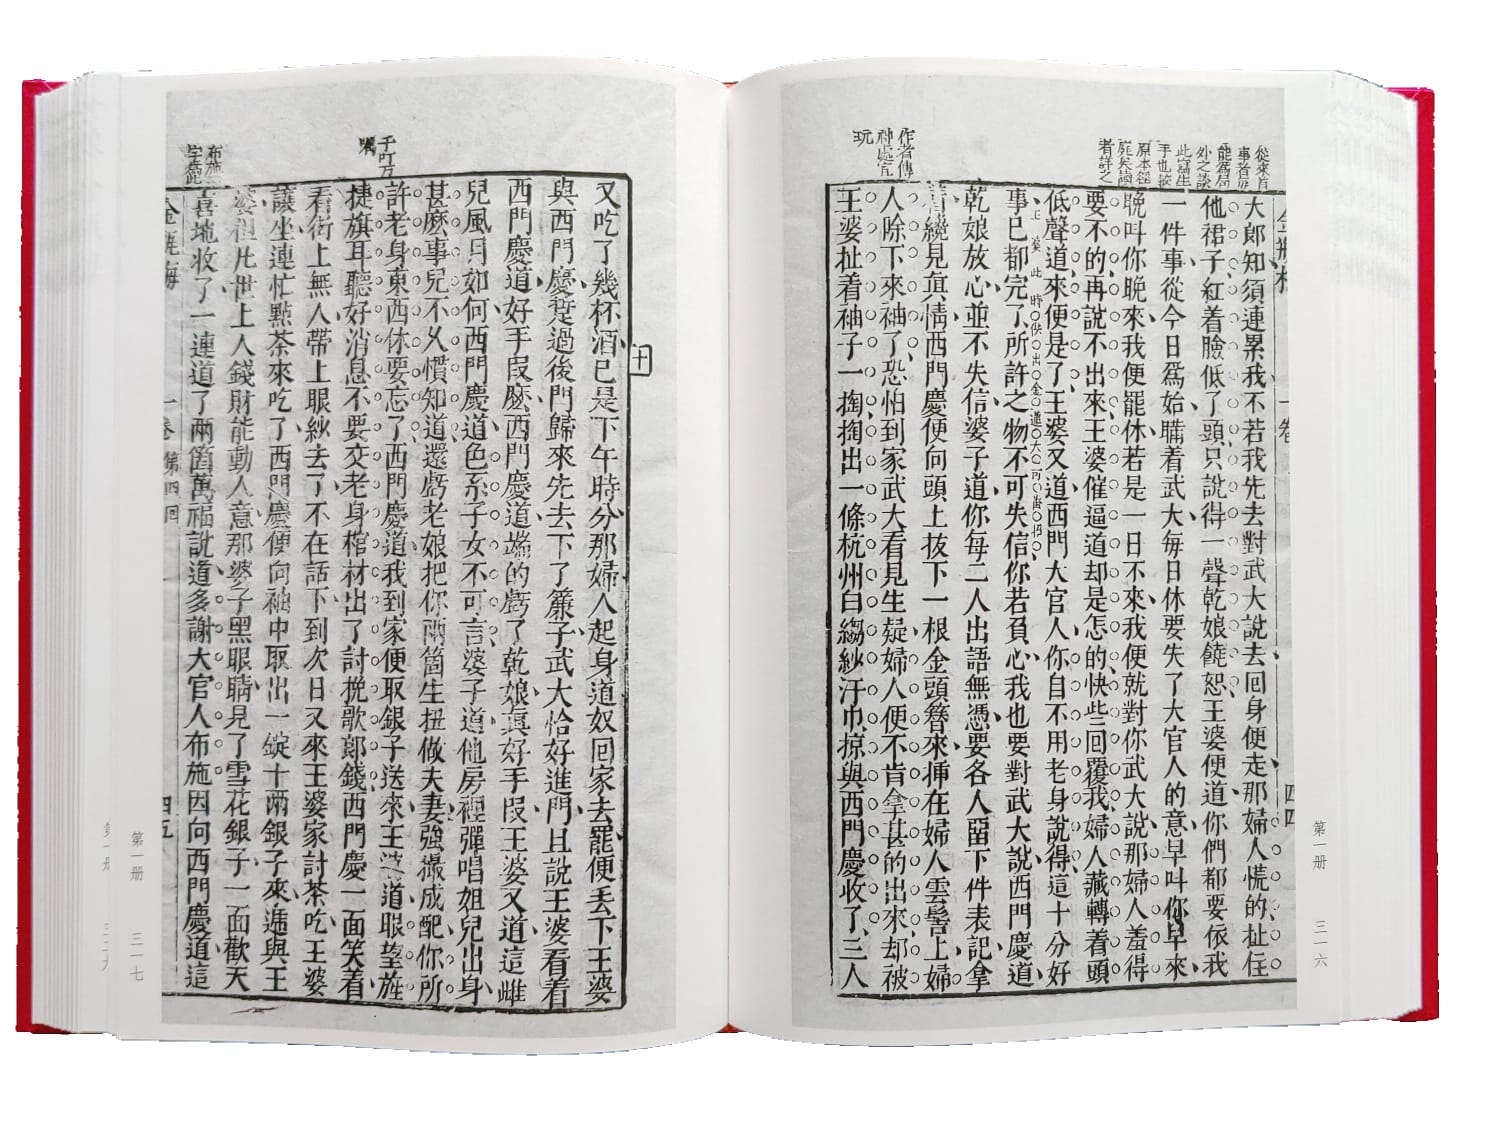 從來首
事者每
能爲局
外之談
此寫生
手也較
原本徑
庭矣讀
者詳之
作者傳
神處宜
玩
金瓶梅 一卷 四四
大郎知須連累我不若我先去對武大說去回身便走那婦人慌的扯住
他裙子紅着臉低了頭只說得一聲乾娘饒恕王婆便道你們都要依我
一件事從今日爲始瞞着武大每日休要失了大官人的意早叫你早來
晚叫你晚來我便罷休若是一日不來我便就對你武大說那婦人羞得
要不的再說不出來王婆催逼道却是怎的快些回覆我婦人藏轉着頭
低聲道來便是了王婆又道西門大官人你自不用老身說得這十分好
事已都完了所許之物不可失信你若負心我也要對武大說西門慶道
乾娘放心並不失信婆子道你每二人出語無憑要各人留下件表記拿
着纔見真情西門慶便向頭上拔下一根金頭簪來揷在婦人雲髻上婦
人除下來袖了恐怕到家武大看見生疑婦人便不肯拿甚的出來却被
王婆扯着袖子一掏掏出一條杭州白縐紗汗巾掠與西門慶收了三人
第一册 三一六
千叮万
囑
布施二
十
又吃了幾杯酒已是下午時分那婦人起身道奴回家去罷便丢下王婆
與西門慶踅過後門歸來先去下了簾子武大恰好進門且說王婆看着
西門慶道好手段麽西門慶道端的虧了乾娘真好手段王婆又道這雌
兒風月如何西門慶道色系子女不可言婆子道他房裡彈唱姐兒出身
甚麽事兒不久慣知道還虧老娘把你兩箇生扭做夫妻強撮成配你所
許老身東西休要忘了西門慶道我到家便取銀子送來王婆道眼望旌
捷旗耳聽好消息不要交老身棺材出了討挽歌郎錢西門慶一面笑着
看街上無人帶上眼紗去了不在話下到次日又來王婆家討茶吃王婆
讓坐連忙點茶來吃了西門慶便向袖中取出一錠十兩銀子來遞與王
婆但凡世上人錢財能動人意那婆子黑眼睛見了雪花銀子一面歡天
喜地收了一連道了兩箇萬福說道多謝大官人布施因問西門慶道這
金瓶梅 一卷 第四回 四五
第一册 三一七
第一册